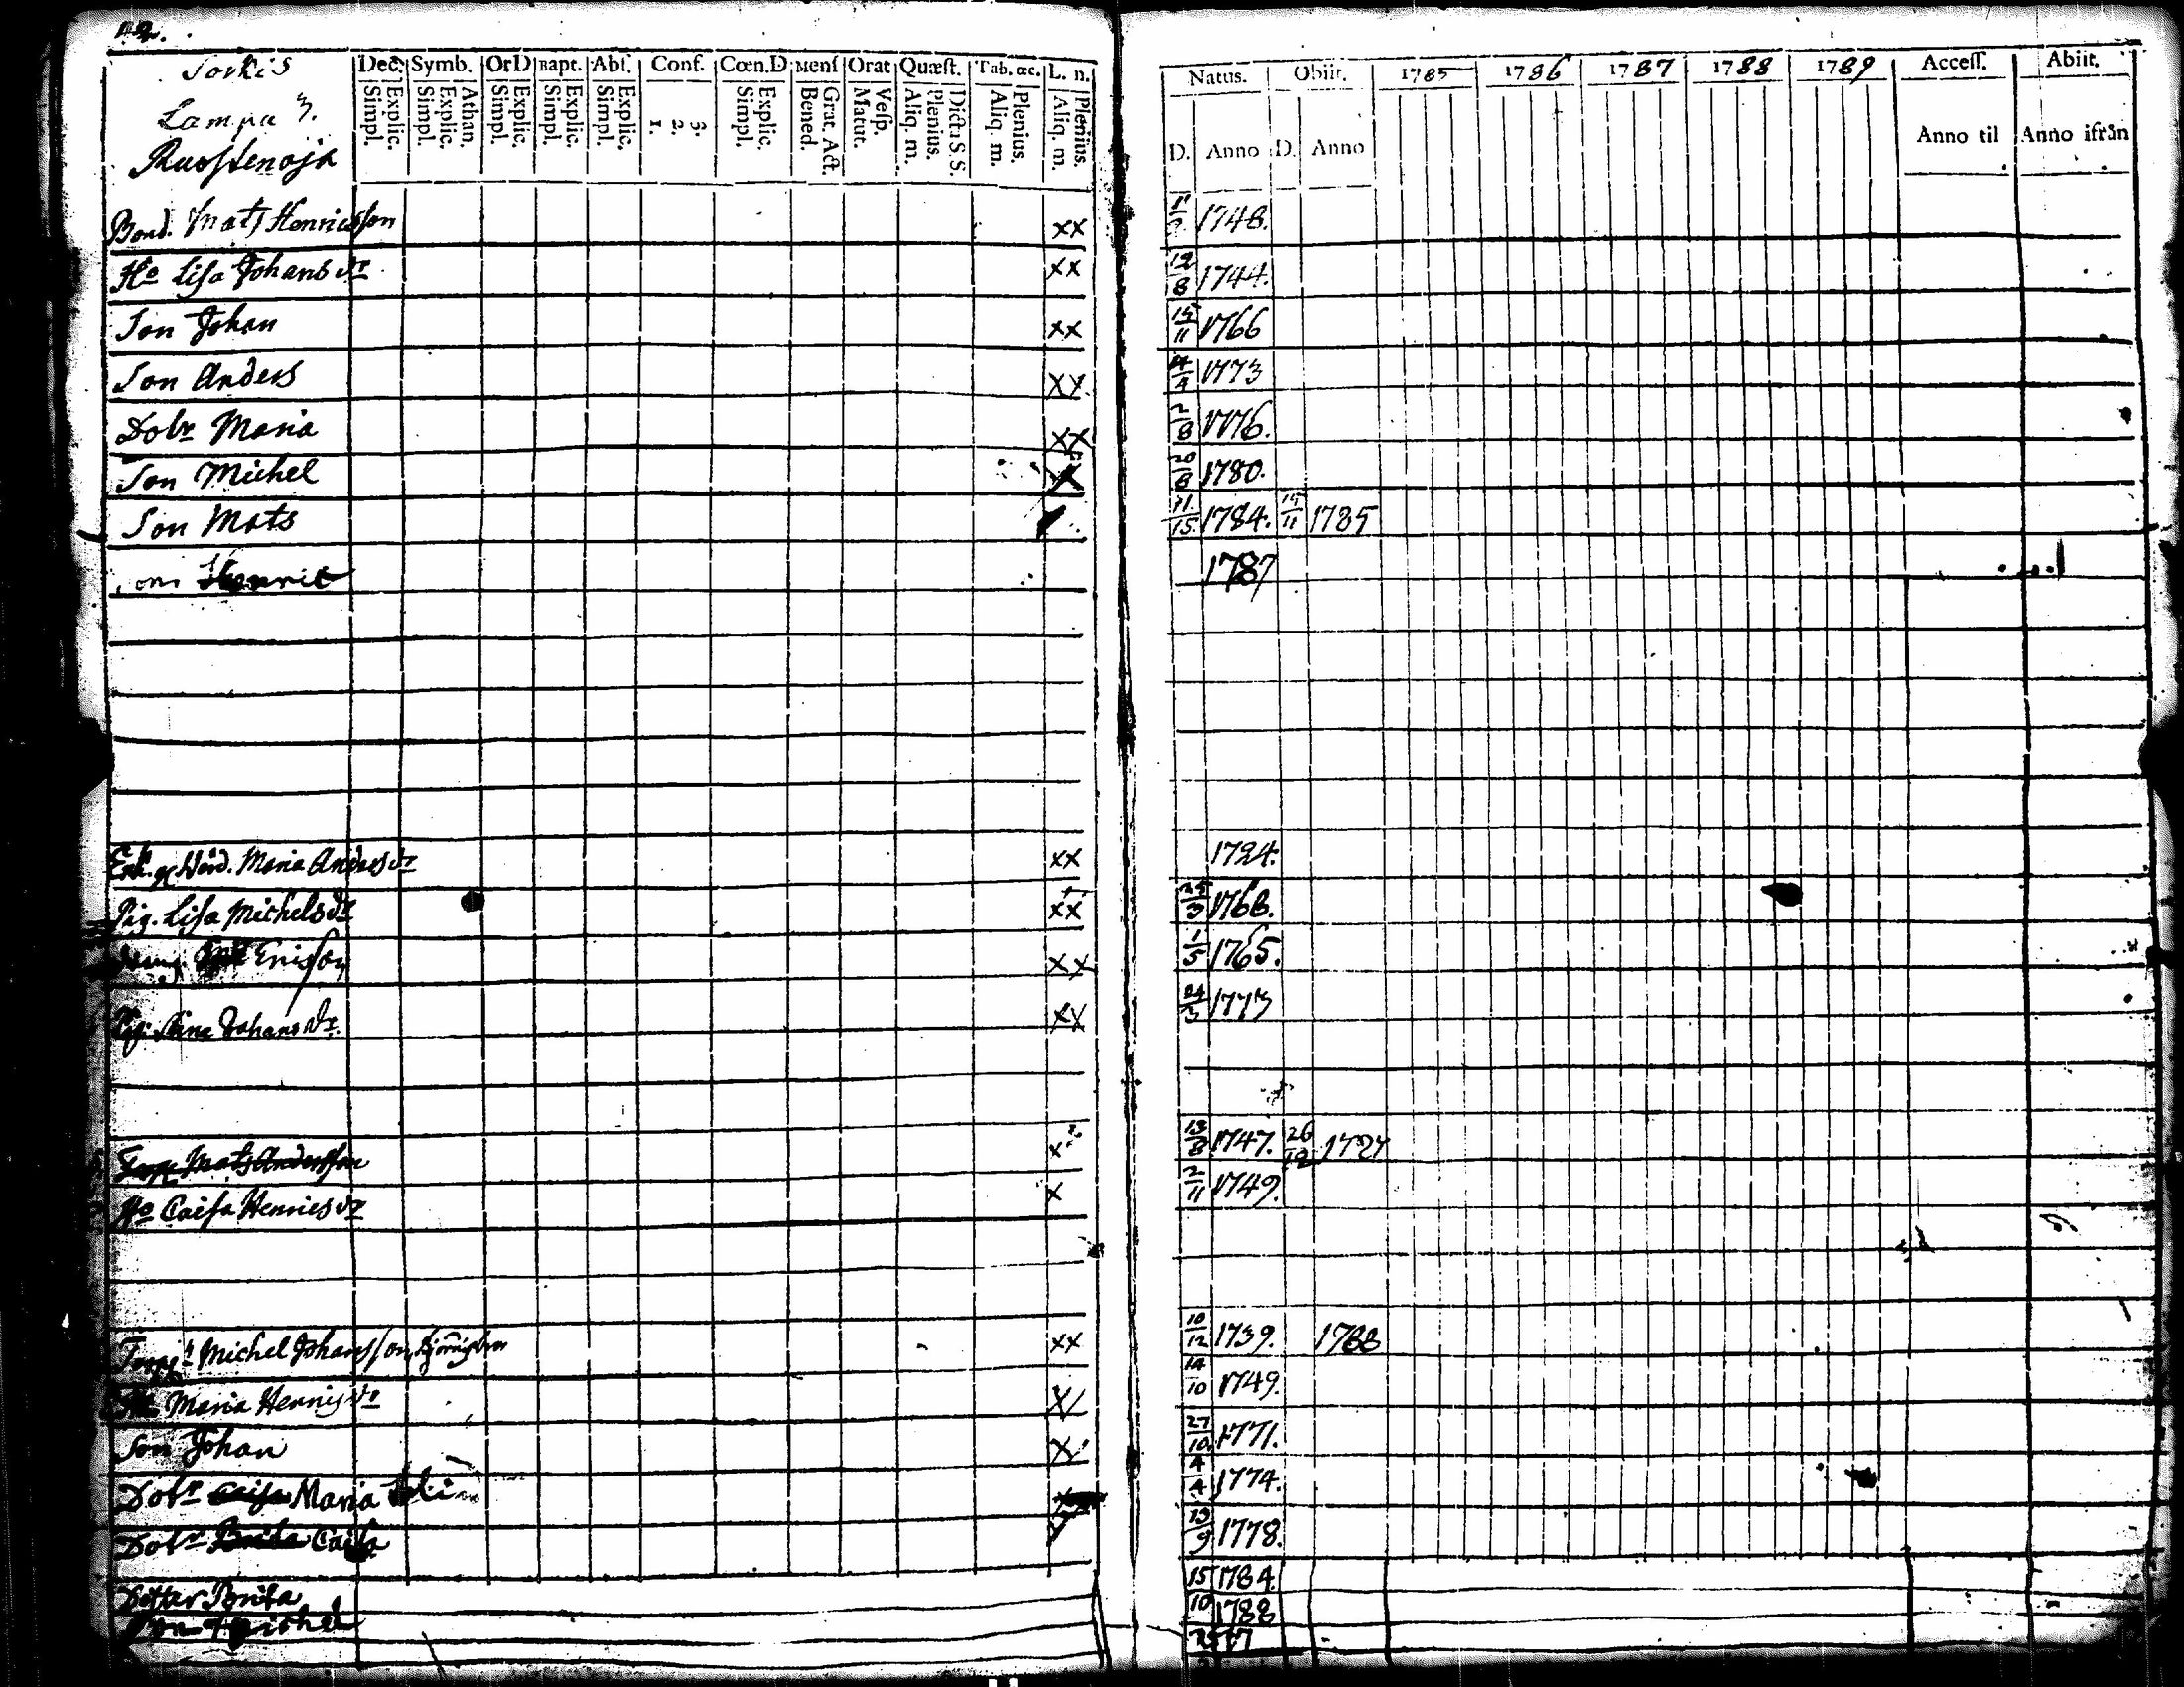 42.
Sorkis
Lampa 3.
Ruostenoja
Dec. Symb. OrD Bapt. Abſ. Conf. Cœn.D Menſ Orat Quæſt. Tab. œc. L. n.
Explic. Simpl. Athan. Explic. Simpl. Explic. Simpl. Explic. Simpl. Explic. Simpl. 3. 2. 1. Explic. Simpl. Grat. Act. Bened. Veſp. Matut. Dicta S.S. Plenius. Aliq. m. Plenius. Aliq. m. Plenius. Aliq. m.
Natus. Obiit. 1785 1786 1787 1788 1789 Acceſſ. Abiit.
D. Anno D. Anno Anno til Anno ifrån
Bond. Mats Henricsson xx 1748.
Ho Lisa Johans dr xx 12/8 1744.
Son Johan xx 15/11 1766
Son Anders xx 1773
Dotr Maria xx 2/8 1776.
Son Michel x 20/8 1780.
Son Mats 11/15 1784. 15/11 1785
Son Henric 1787
Enk. Maria Anders dr xx 1724.
Pig. Lisa Michels dr xx 25/3 1768.
Ericsson xx 1/5 1765.
Pig. Stina Johans dr. xx 24/3 1773
Mats Andersson x 13/8 1747. 26/12 1787
Ho Caisa Henrics dr x 2/11 1749.
Michel Johansson xx 10/12 1739. 1788
Maria Henrics dr x 14/10 1749.
Son Johan x 27/10 1771.
Dotr Caisa Maria 4/4 1774.
Dotr Brita Caisa 19/9 1778.
Dotter Brita 15/10 1784.
Son Michel 1788